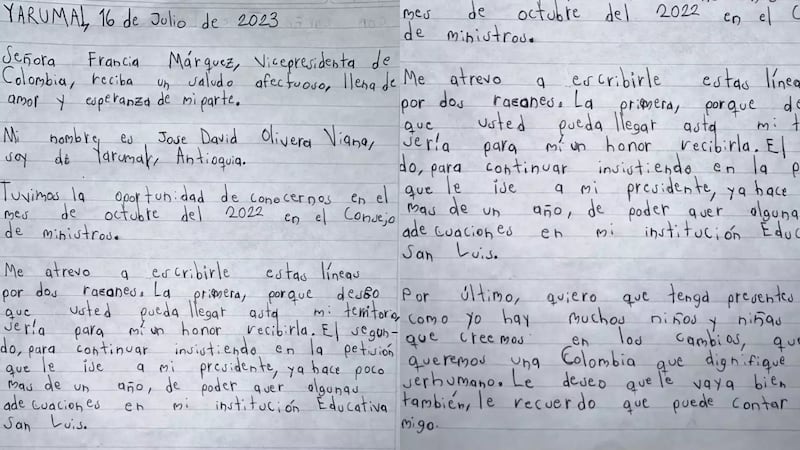 YARUMAL, 16 de Julio de 2023
Señora Francia Márquez, Vicepresidenta de
Colombia, reciba un saludo afectuoso, llena de
amor y esperanza de mi parte.
Mi nombre es Jose David Olivera Viana,
soy de Yarumal, Antioquia.
Tuvimos la oportunidad de conocernos en el
mes de octubre del 2022 en el Consejo
de ministros.
Me atrevo a escribirle estas líneas
por dos razones. La primera, porque deseo
que usted pueda llegar asta mi territorio,
sería para mí un honor recibirla. El segun-
do, para continuar insistiendo en la petisión
que le ise a mi presidente, ya hace poco
mas de un año, de poder aver algunas
adecuaciones en mi institución Educativa
San Luis.
mes de octubre del 2022 en el C
de ministros.
Me atrevo a escribirle estas línea
por dos razones. La primera, porque de
que usted pueda llegar asta mi t
sería para mí un honor recibirla. El
do, para continuar insistiendo en la p
que le ise a mi presidente, ya hace
mas de un año, de poder aver alguna
adecuaciones en mi institución Educ
San Luis.
Por último, quiero que tenga presentes
como yo hay muchos niños y niñas
que creemos en los cambios, que
queremos una Colombia que dignifique
serhumano. Le deseo que le vaya bien
también, le recuerdo que puede contar
migo.